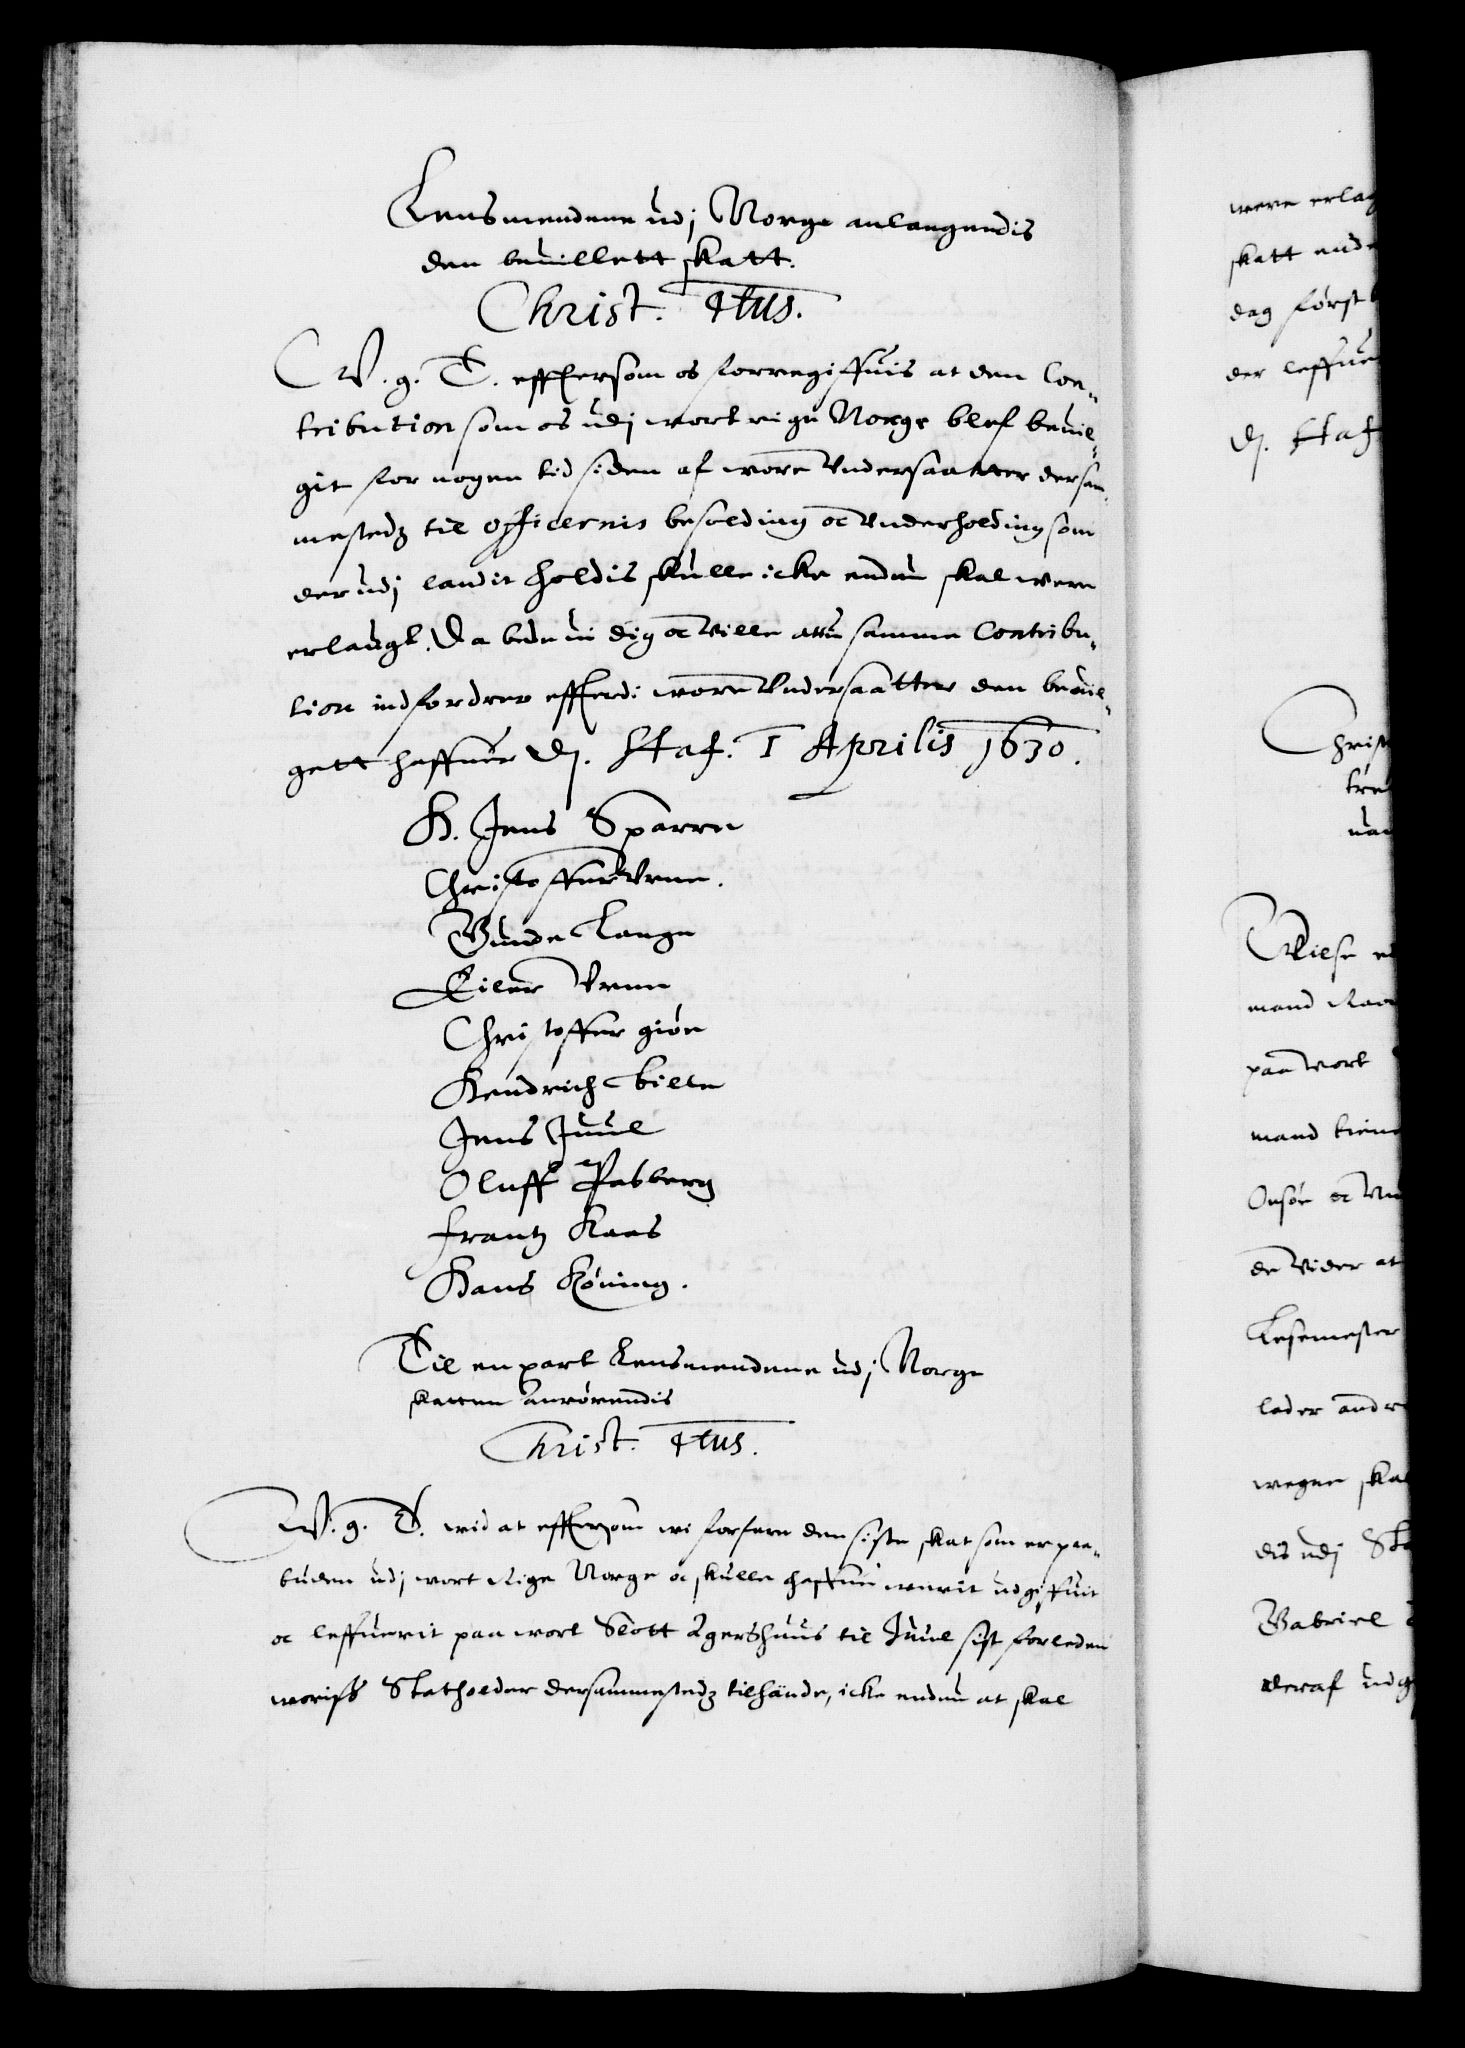 Lensmendene udj Norge anlangendis
den beuillett skatt.
Christ. 4tus.
W. g. T. effttersom os forregiffuis at den Con¬
tribution som os udj wort rige Norge blef beuil¬
git for nogen tid siden af wore Vndersaatter dersam¬
mestedz til officernis besolding oc Vnderholding som
der udj landit holdis skulle icke endnu skal were
erlaugt. Da bede wi dig oc Ville attu samme Contribu¬
tion indfordrer effterdj wore Vndersaatter den beuil¬
gett haffuer Dj. Haf. 1 Aprilis 1630.
H. Jens Sparre
Christoffer Vrne.
Gunde Lange
Eiler Vrne
Christoffer giøe
Hendrich bille
Jens Juul
Oluff Pasberg
frantz Kaas
Hans Køning.
Til en part Lensmendene udj Norge
skatten anrørendis
Christ. 4tus.
W. g. T. wid at efftersom wi forfare den siste skat som er paa¬
buden udj wort Rige Norge oc skulle haffue werit udgiffuit
oc leffuerit paa wort Slott Agershuus til Juul sist forleden
worist Statholder dersammestedz tilhände, icke endnu at skal
were erlag
skatt end
dag først
der leffue
Dj. Haf
Christ
tre
Wilse
mand
paa wort
mand tien
Onsøe oc
de Vider at
Lesemester
lader andr
wegne skal
dis udj Sta
Gabriel
deraf udg